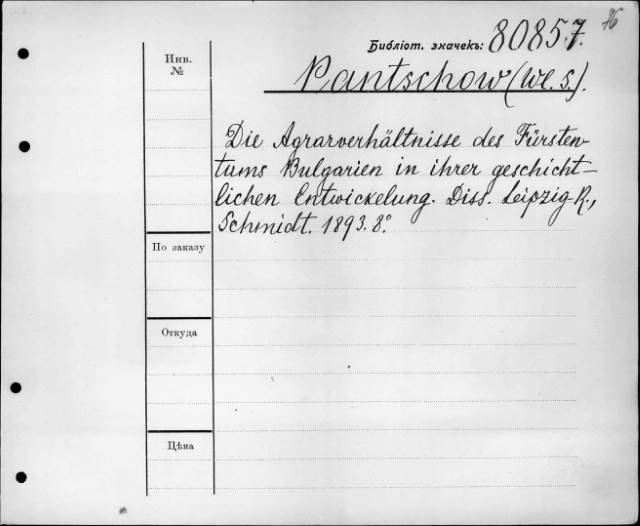 76
Библіот. значекъ: 80857.
Инв.
№
Pantschow (Wl. S.).
Die Agrarverhältnisse des Fürsten-
tums Bulgarien in ihrer geschicht-
lichen Entwickelung. Diss. Leipzig-R.,
Schmidt. 1893. 8°.
По заказу
Откуда
Цѣна